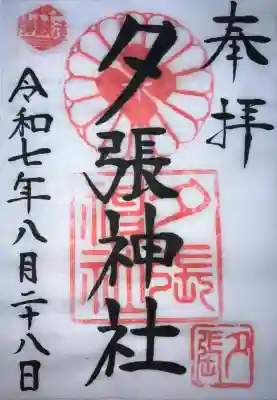 奉拝
夕張神社
令和七年八月二十八日
夕張